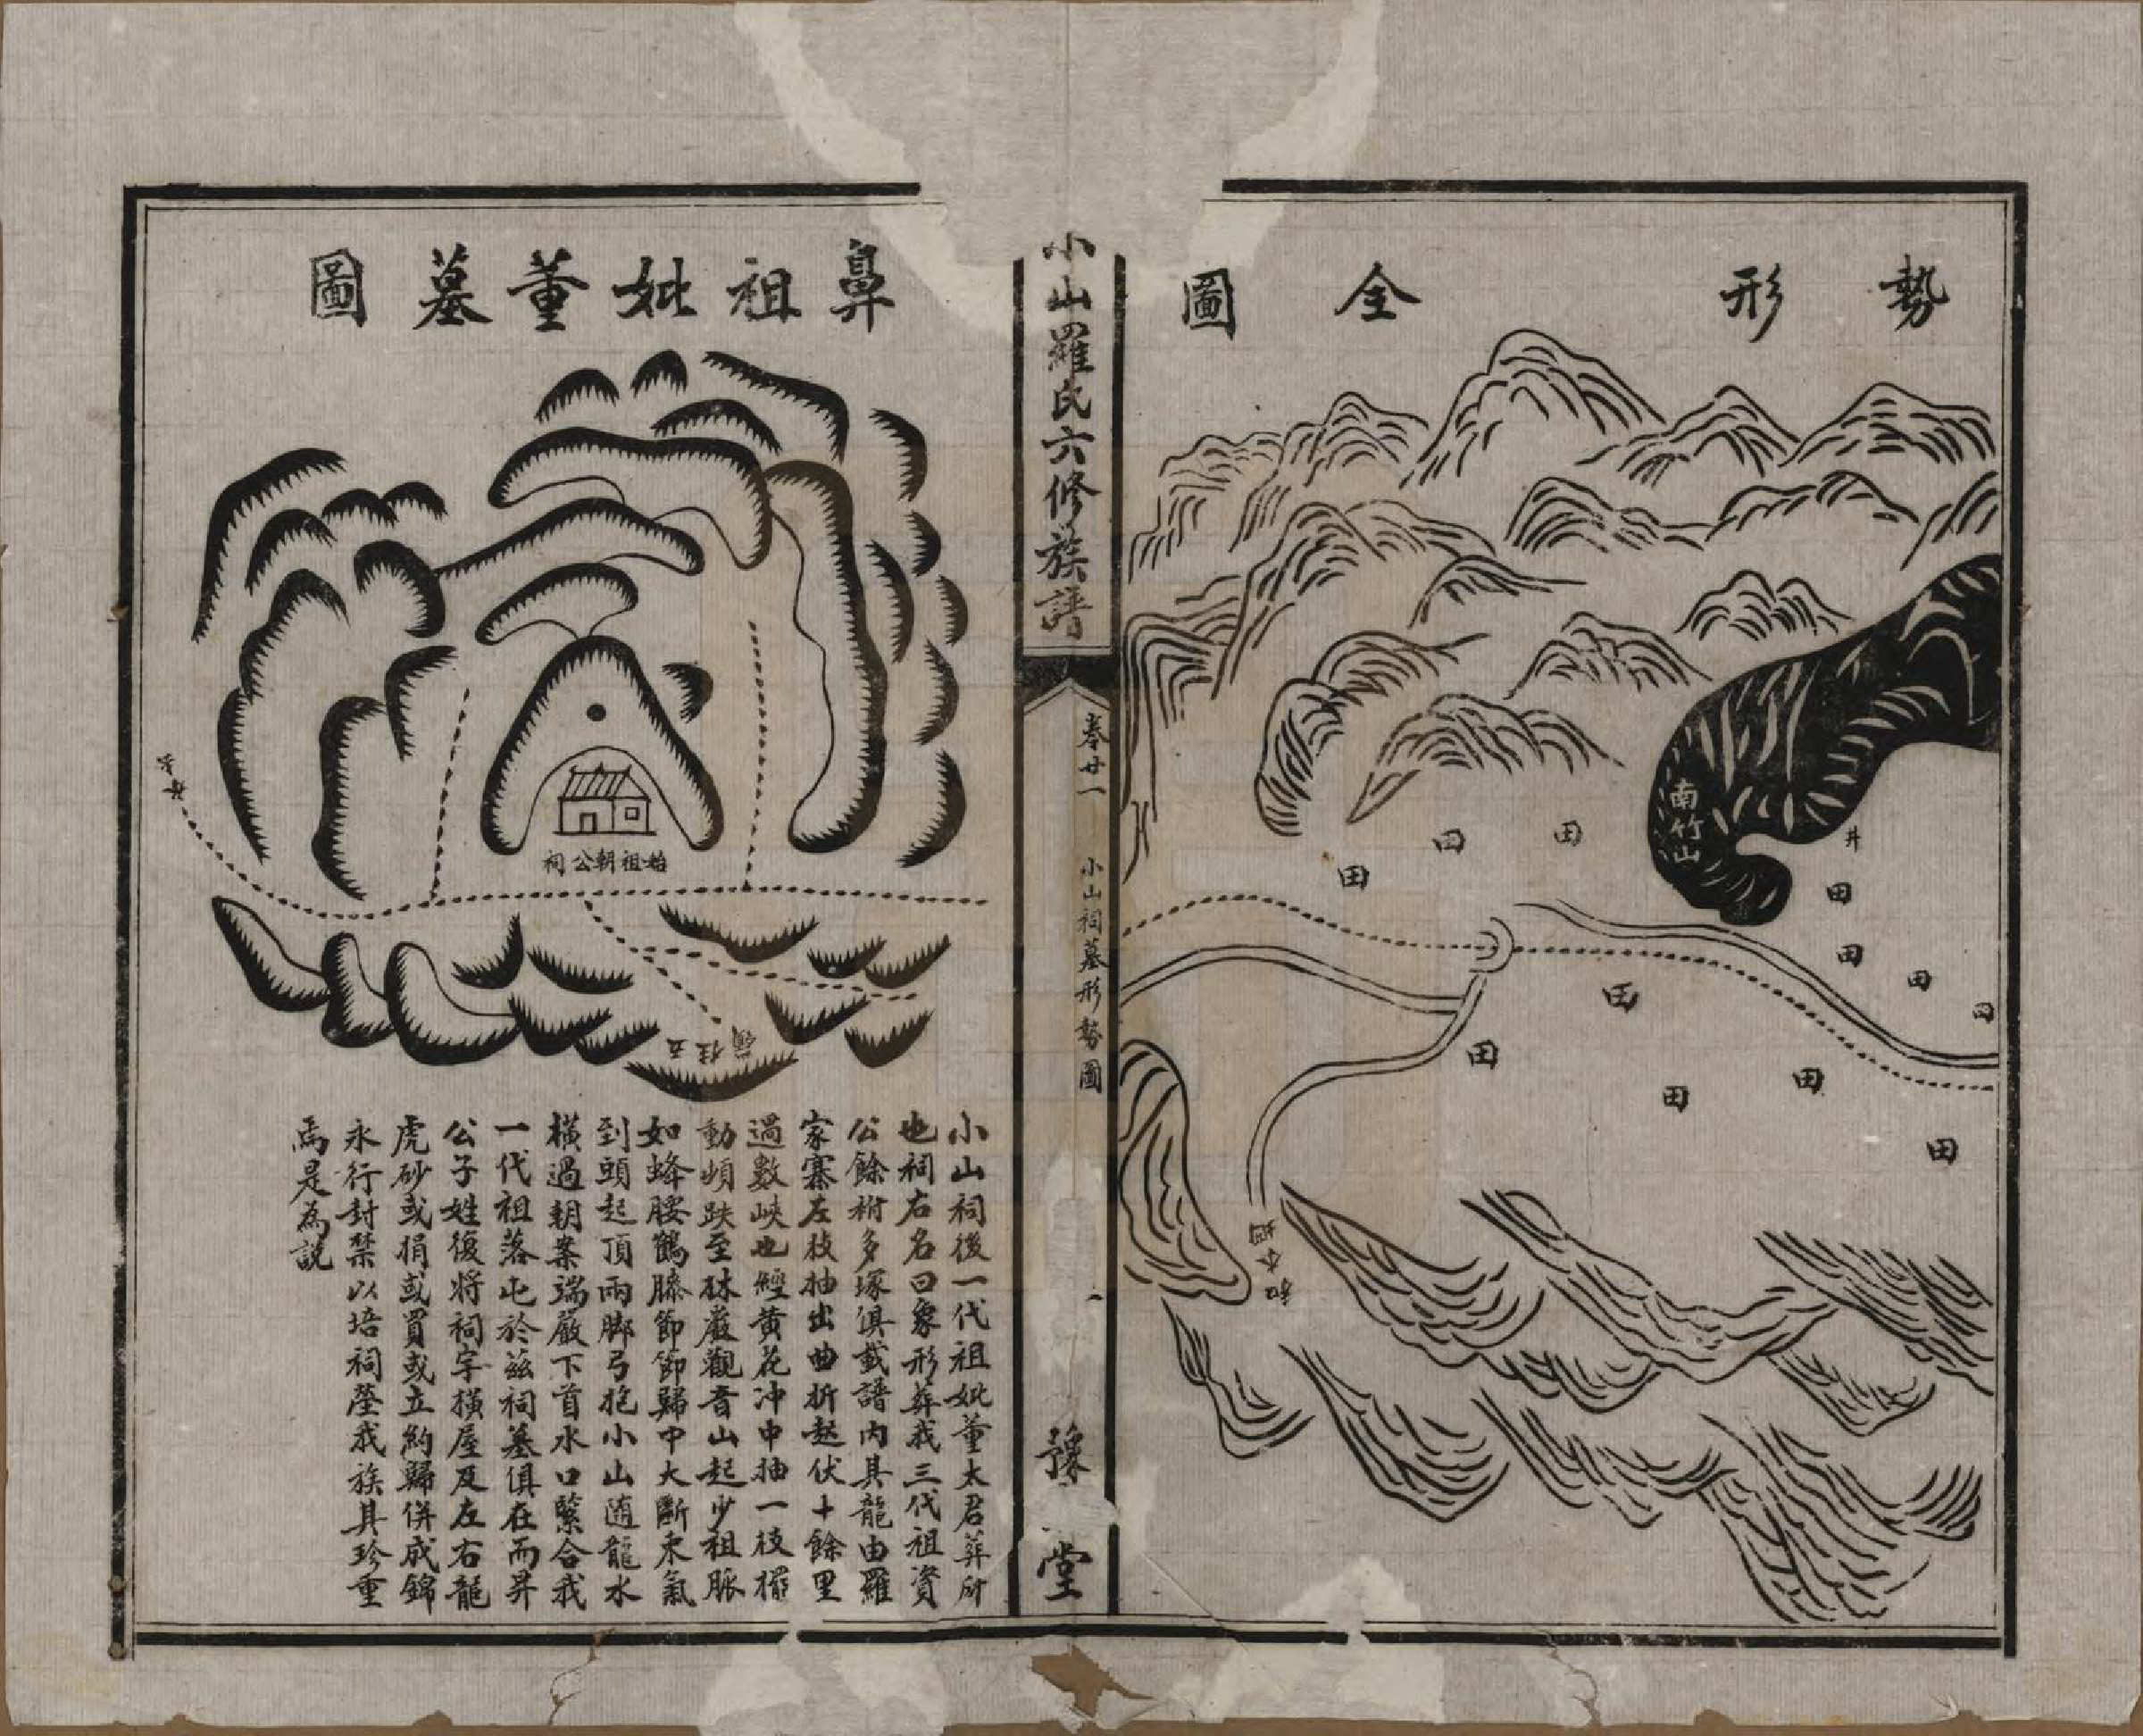 勢形全圖
南竹山
井
田
田
田
田
田
田
田
田
田
田
田
田
田
小山羅氏六修族譜
卷廿一
小山祠墓形勢圖
豫
堂
鼻祖妣董墓圖
始祖朝公祠
五桂嶺
小山祠後一代祖妣董太君葬所
也祠右名曰象形葬我三代祖資
公餘祔多塚俱載譜内其龍由羅
家寨左枝抽出曲折起伏十餘里
過數峽也經黄花冲中抽一枝擺
動頓跌至砵嚴觀音山起少祖脈
如蜂腰鶴膝節節歸中大斷束氣
到頭起頂兩脚弓抱小山随龍水
横過朝案端嚴下首水口緊合我
一代祖落屯於兹祠墓俱在而昇
公子姓復將祠宇横屋及左右龍
虎砂或捐或買或立約歸併成錦
永行封禁以培祠塋我族其珍重
焉是為說